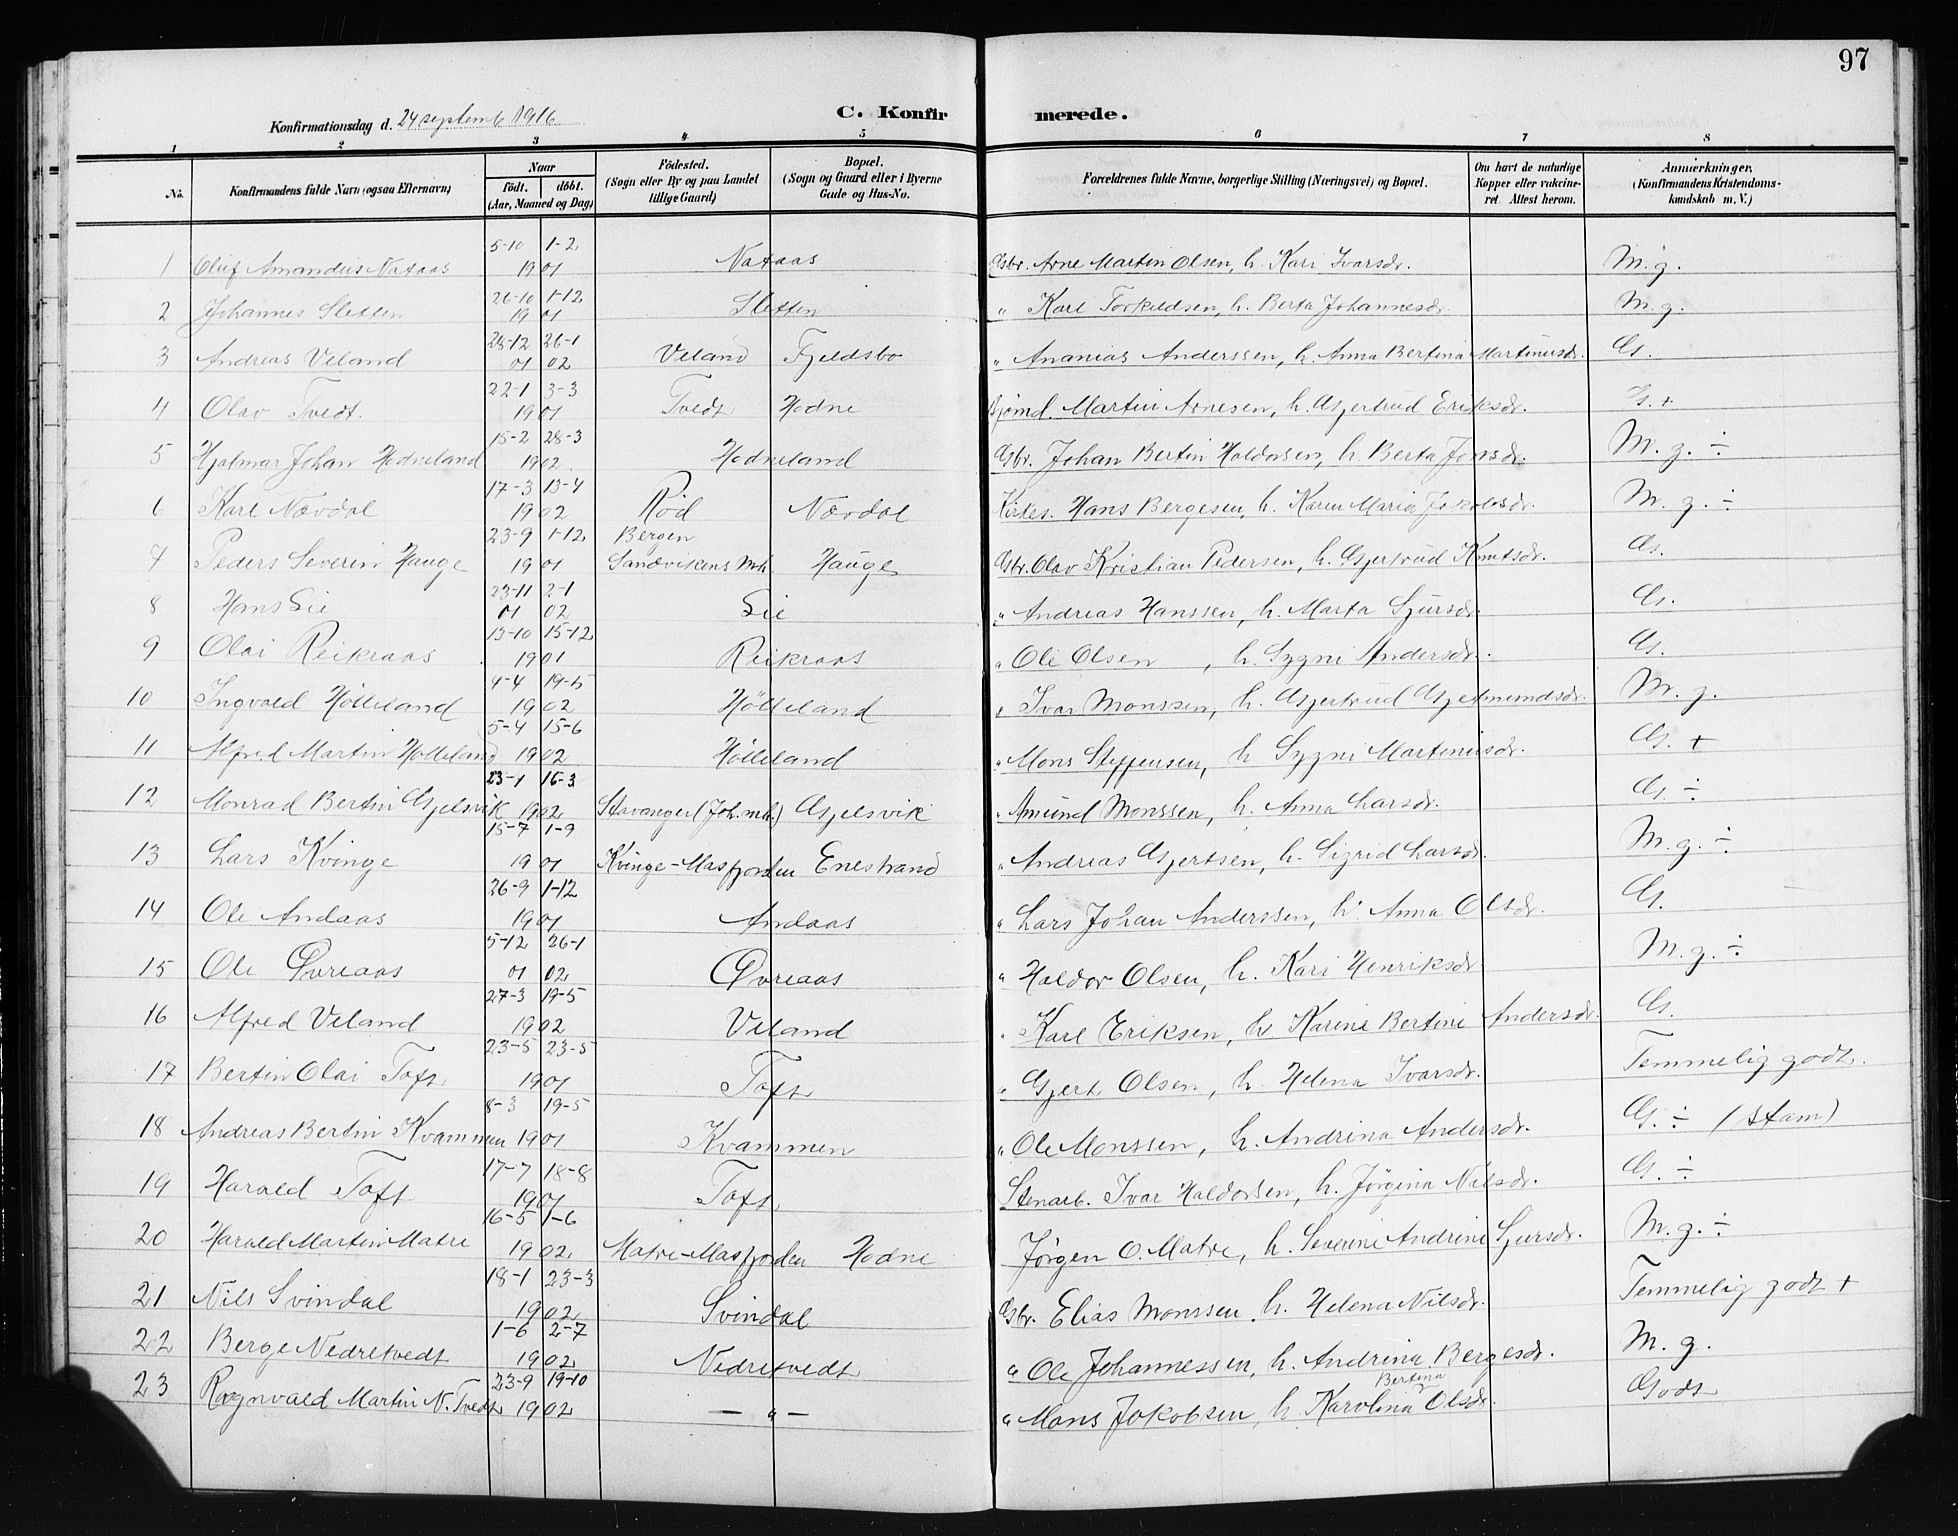 97
Konfirmationsdag d. 24 septemb 1916
C. Konfirmerede.
1 2 3 4 5 6 7 8
No.
Konfirmandens fulde Navn (ogsaa Efternavn)
Naar
födt. döbt.
(Aar, Maaned og Dag)
Födested.
(Sogn eller By og paa Landet
tillige Gaard)
Bopæl.
(Sogn og Gaard eller i Byerne
Gade og Hus-No.
Forældrenes fulde Navne, borgerlige Stilling (Næringsvei) og Bopæl.
Om havt de naturlige
Kopper eller vakcine-
ret. Attest herom.
Anmærkninger,
(Konfirmandens Kristendoms-
kundskab m. V.)
1 Oluf Amandus Nataas 5-10 1-2 1901 Nataas Gbr. Arne Martin Olsen, h. Kari Ivarsdr. M. g.
2 Johannes Sletten 26-10 1-12 1901 Sletten " Karl Torkildsen, h. Berta Johannesdr. M. g.
3 Andreas Veland 28-12 26-1 01 02 Veland Fjeldsbo " Ananias Anderssen, h. Anna Bertina Martinusdr. G.
4 Olav Tvedt. 22-1 3-3 1901 Tvedt Hodne Martin Arnesen, h. Gjertrud Eriksdr. G. +
5 Hjalmar Johan Hodneland 15-2 28-3 1902 Hodneland Gbr. Johan Bertin Haldorsen, h. Berta Jonsdr. M. g. ÷
6 Karl Nævdal 17-3 13-4 1902 Röd Nævdal Kirkes. Hans Bergesen, h. Karen Maria Jakobsdr. M. g. ÷
7 Peders Severin Hauge 23-9 1-12 1901 Bergen Sandvikens Mh. Hauge Gbr. Olav Kristian Pedersen, h. Gjertrud Knutsdr. G.
8 Hans Lie 23-11 2-1 01 02 Lie " Andreas Hanssen, h. Marta Sjursdr. G.
9 Olai Reikraas 13-10 15-12 1901 Reikraas " Ole Olsen , h. Sygni Andersdr. G.
10 Ingvald Hölleland 4-4 19-5 1902 Hölleland " Ivar Monssen, h. Gjertrud Gjetmundsdr. M. g.
11 Alfred Martin Hölleland 5-4 15-6 1902 Hölleland " Mons Steffensen, h Sygni Martinusdr. G. +
12 Monrad Bertin Gjelsvik 23-1 16-3 1902 Stavanger (Joh. mh.) Gjelsvik " Amund Monssen, h. Anna Larsdr. G. ÷
13 Lars Kvinge 15-7 1-9 1901 Kvinge-Masfjorden Enestrand " Andreas Gjertsen, h. Sigrid Larsdr. M. g. ÷
14 Ole Andaas 26-9 1-12 1901 Andaas " Lars Johan Anderssen, h. Anna Olsdr. G.
15 Ole Øvreaas 5-12 26-1 01 02 Øvreaas " Haldor Olsen, h. Kari Henriksdr. M. g. ÷
16 Alfred Veland 27-3 19-5 1902 Veland " Karl Eriksen, h. Karine Bertine Andersdr. G.
17 Bertin Olai Toft. 23-5 23-5 1901 Toft " Gjert Olsen, h. Helena Ivarsdr. Temmelig godt.
18 Andreas Bertin Kvammen 8-3 19-5 1901 Kvammen " Ole Monssen, h. Andrina Andersdr. G. ÷ (stam)
19 Harald Toft 17-7 18-8 1901 Toft Stenarb. Ivar Haldorsen, h. Jörgina Nilsdr. G. ÷
20 Harald Martin Matre 16-5 1-6 1902 Matre-Masfjorden Hodne Jörgen O. Matre, h. Severine Andrine Sjursdr. M. g. ÷
21 Nils Svindal 18-1 23-3 1902 Svindal Gbr. Elias Monssen, h. Helena Nilsdr. Temmelig godt +
22 Berge Nedretvedt 1-6 2-7 1902 Nedretvedt " Ole Johannessen, h. Andrina Bergesdr. M. g.
23 Ragnvald Martin N. Tvedt 23-9 19-10 1902 — " — " Mons Jakobsen, h Karolina Bertina Olsdr. Godt